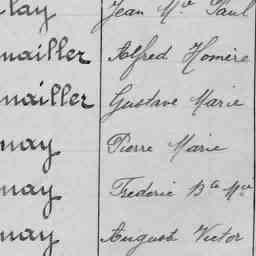 lay Jean Mie Paul
mailler Alfred Homère
mailler Gustave Marie
may Pierre Marie
may Frederic Bte Mie
may August Victor